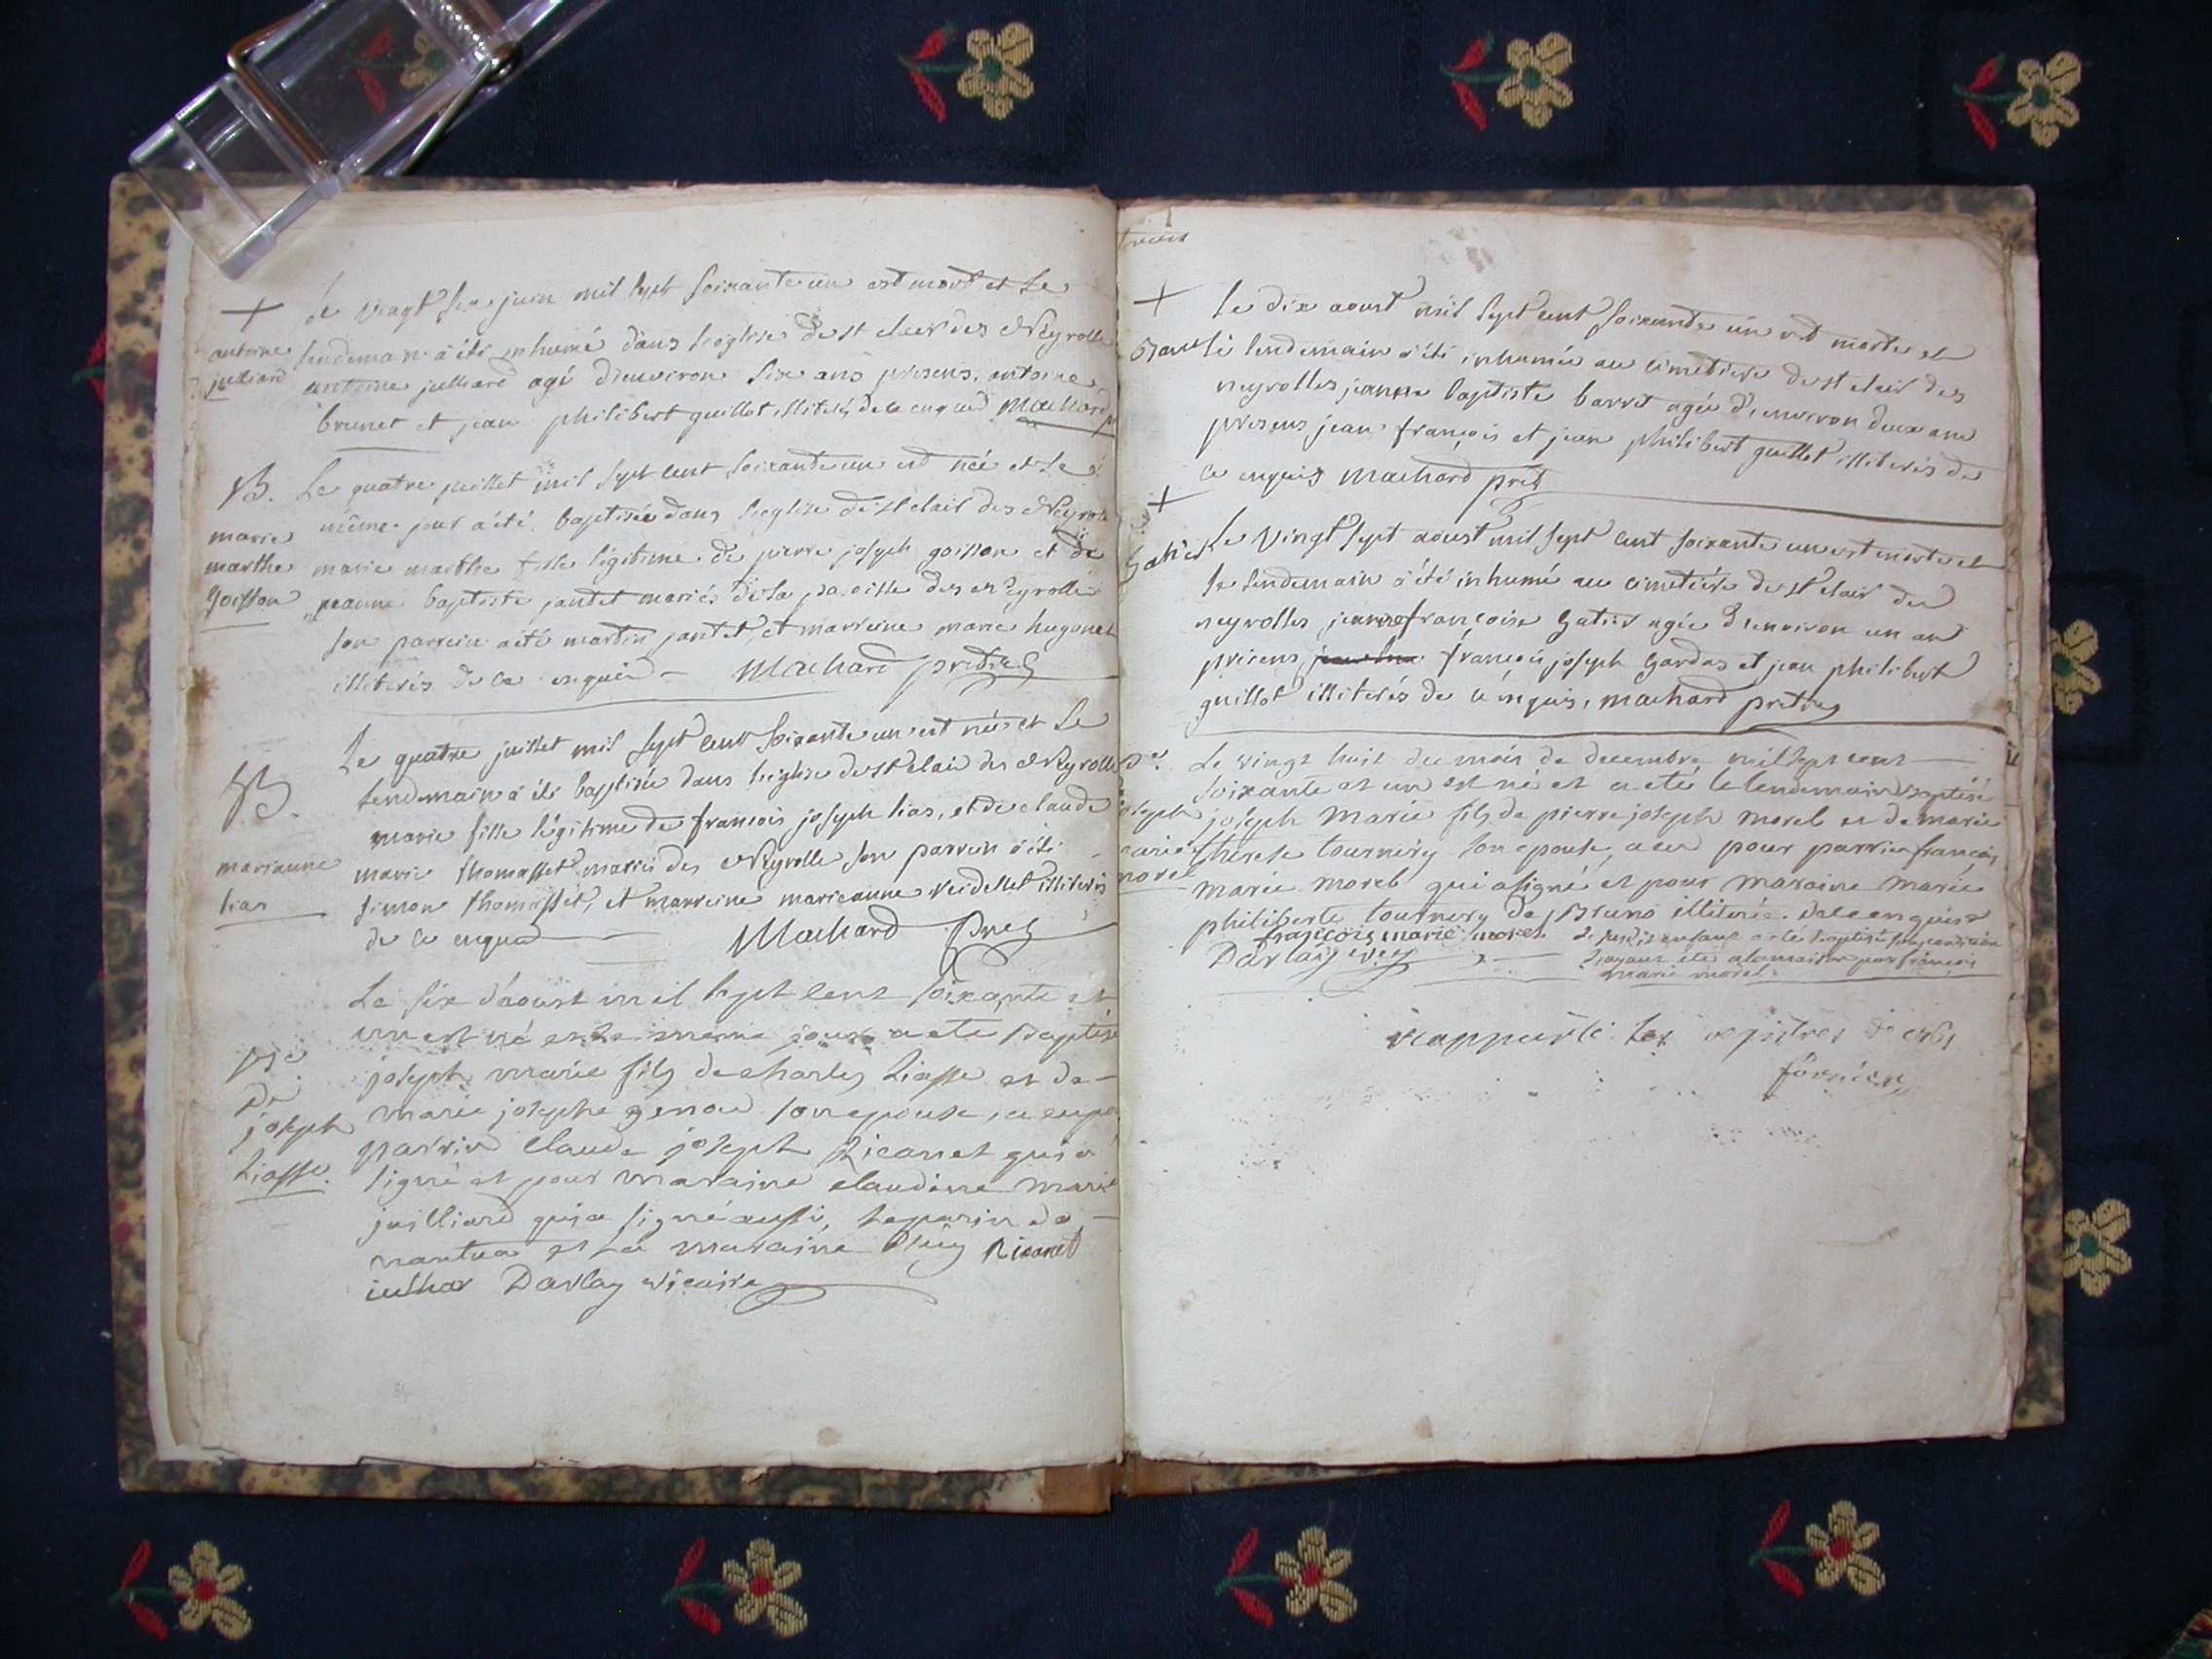 + Le vingt six juin mil sept soixante un est mort et le
antoine lendemain a été inhumé dans l'eglise de st clair des Neyrolle
julliard antoine julliard agé d'environ six ans presens, antoine
brunet et jean philibert guillet illiterés de ce enquis Machard
B. Le quatre juillet mil sept cent soixante un est née et le
marie même jour a été baptisée dans l'eglise de st clair des Neyrolle
marthe marie marthe fille légitime de pierre joseph goiffon et de
Goiffon jeanne baptiste jantet mariés de la paroisse des neyrolles
son parrein a été martin jantet, et marreine marie hugonet
illiterés de ce enquis - Machard pretre
Le quatre juillet mil sept cent soixante un est née et le
B. lendemain a été baptisée dans l'eglise de st clair des Neyrolle
marie fille légitime de francois joseph lias, et de claude
marianne marie thomasset mariés des Neyrolle son parrein a été
lias simon thomasset, et marreine marieanne verdellet illiterés
de ce enquis Machard Pre
Le six d'aoust mil sept cent soixante et
un est né et le même jour a eté Baptisé
joseph marie fils de charles Liasse et de -
joseph marie josephe genod son epouse, a eu po
parrin Claude joseph Ricanet qui a
Liasse. signé et pour maraine claudine marie
juilliard qui a signé aussi, le parin de -
nantua et la maraine Ricanet
Darlay vicaire
+ le dix aoust mil sept cent soixante un est morte et
le lendemain a été inhumée au cimetiere de st clair des
neyrolles jeanne baptiste barret agée d'environ deux ans
presens jean françois et jean philibert guillet illiterés de
ce enquis Machard pret
+
Gatier Le vingt sept aoust mil sept cent soixante un est morte et
le lendemain a été inhumé au cimetière de st clair des
neyrolles jeanne françoise gatier agée d'environ un an
presens françois joseph gardas et jean philibert
guillot illiterés de ce enquis, machard pretre
Le vingt huit du mois de decembre mil sept cent
soixante et un est né et a eté le lendemain Baptisé
joseph joseph Marie fils de pierre joseph morel et de marie
marie therese tournery son epouse, a eu pour parrin françois
morel marie morel qui a signé et pour maraine marie
philiberte tournery de Bruno illiterée de ce enquise
françois marie morel le susdit enfant a été baptisé sous condition
Darlay vic. l'ayant été a la maison par françois
marie morel.
rapporté les registres de 1761